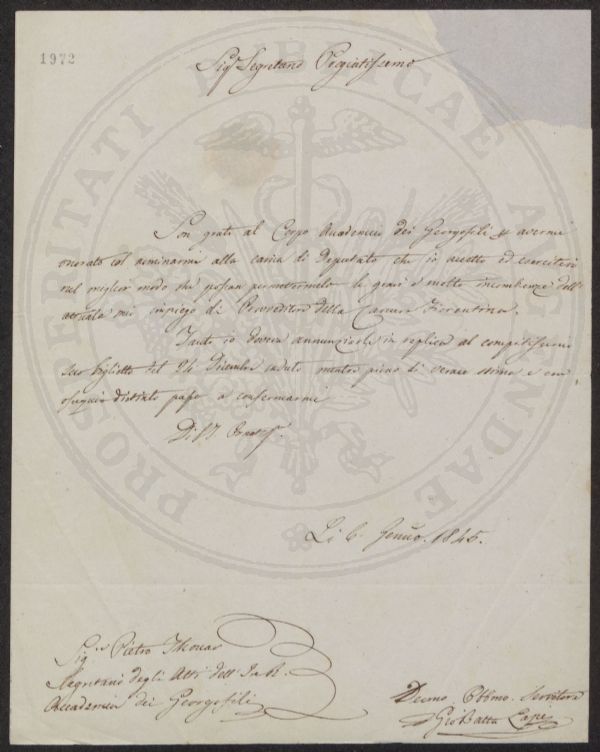 1972
Sigr Segretario Pregiatissimo
Son grato al Corpo Accademico dei Georgofili p avermi
onorato col nominarmi alla carica di Deputato che io accetto ed eserciterò
nel miglior modo che possan permettermelo le gravi e molte incombenze dell'
attuale mio impiego di Provveditore della Camera Fiorentina.
Tanto io doveva annunziarle in replica al compitissimo
suo biglietto del 24 Dicembre caduto mentre pieno di verace stima e con
ossequio distinto passo a confermarmi
Di V.S.
Li 6. Gennio. 1845.
Sigr Pietro Thouar
Segretario degli Atti dell' I. e R.
Accademia dei Georgofili
Devmo Obbmo. Servitore
GioBatta Capei
PROSPERITATI PUBLICAE AUGENDAE